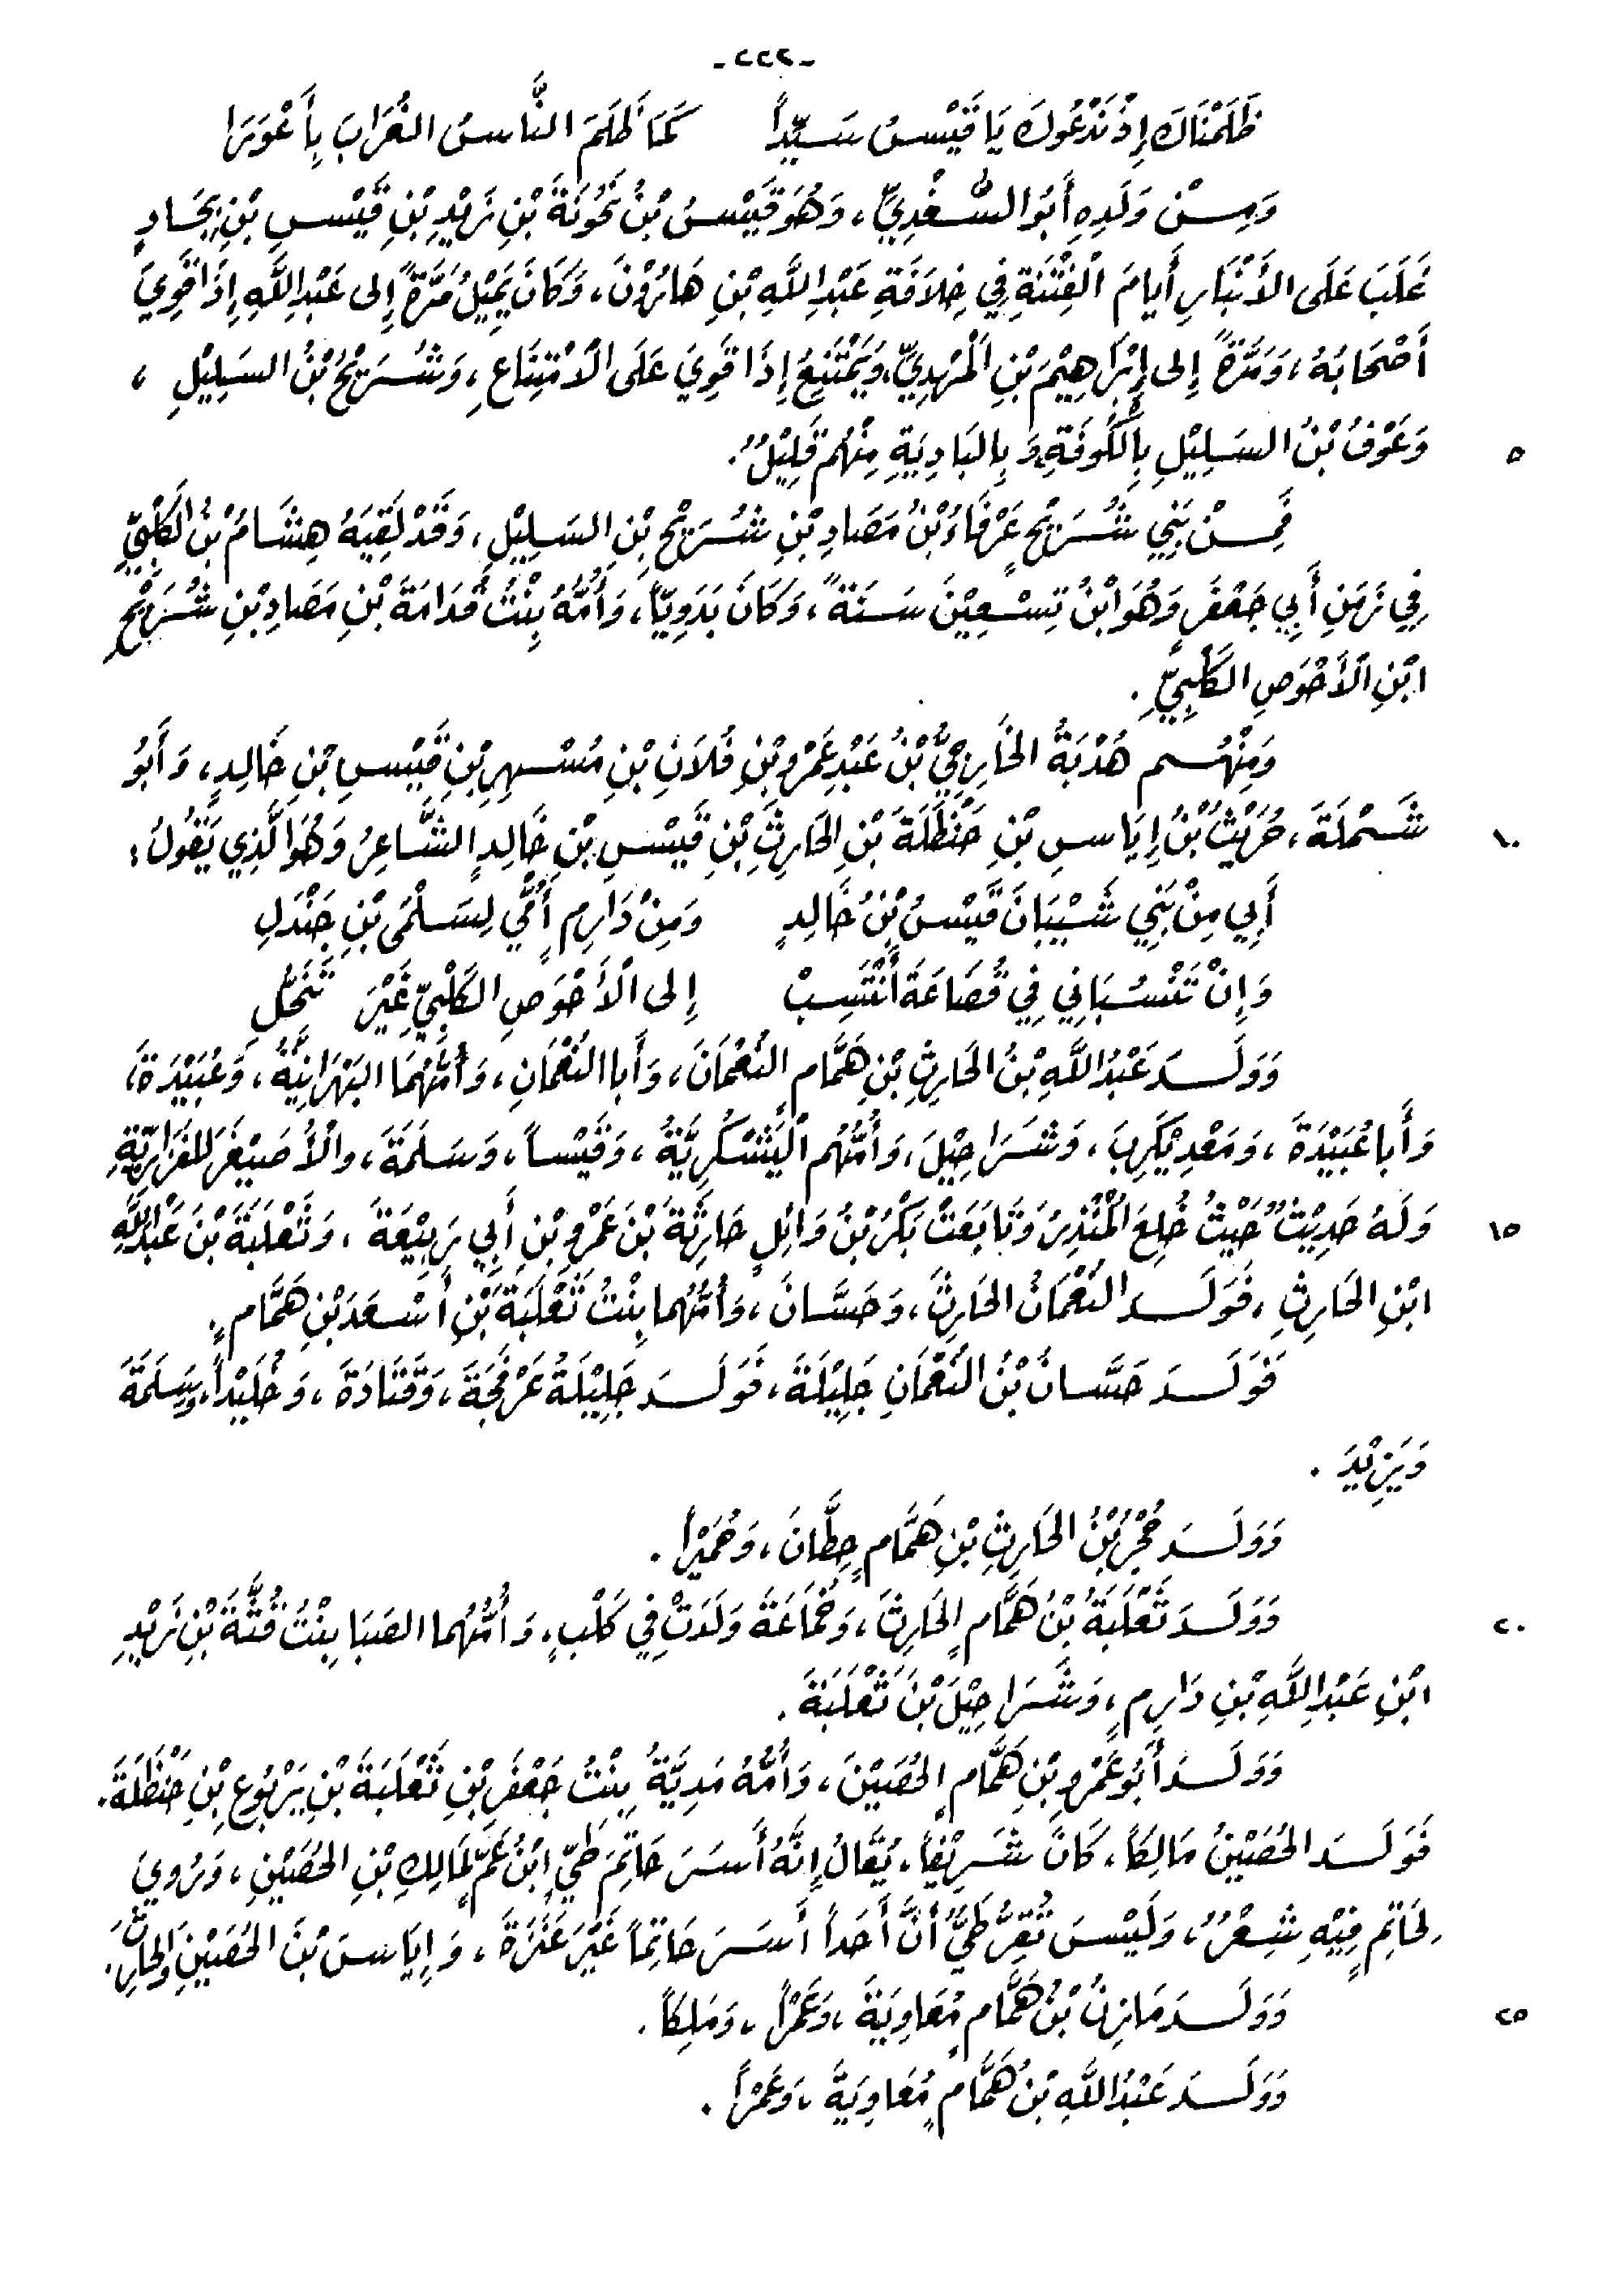 - ٢٢٢ -
ظَلَمْنَاكَ إِذْ نَدْعُوكَ يَا قَيْسُ سَيِّداً كَمَا ظَلَمَ النَّاسُ الغُرَابَ بِأَعْوَرَا
وَمِنْ وَلَدِهِ أَبُو السُّغْدِيِّ، وَهُوَ قَيْسُ بْنُ نَحُونَةَ بْنِ زَيْدِ بْنِ قَيْسِ بْنِ بِجَادٍ
غَلَبَ عَلَى الأَنْبَارِ أَيامَ الْفِتْنَةِ فِي خِلاَفَةِ عَبْدِ اللَّهِ بْنِ هَارُوْنَ، وَكَانَ يَمِيْلُ مَرَّةً إِلى عَبْدِ اللَّهِ إِذَا قَوِيَ
أَصْحَابَهُ، وَمَرَّةً إِلى إِبْرَاهِيْمَ بْنِ الْمَهْدِيِّ، وَيَمْتَنِعُ إِذَا قَوِيَ عَلَى الاْمْتِنَاعِ، وَشُرَيْحُ بْنُ السَلِيْلِ،
وَعَوْفُ بْنُ السَلِيْلِ بِالكُوفَةِ وَبِالبَادِيَةِ مِنْهُم قَلِيْلٌ. ٥
فَمِنْ بَنِي شُرَيْحٍ عَرْفَاءُ بْنُ مَصَادِ بْنِ شُرَيْحِ بْنِ السَلِيْلِ، وَقَدْ لَقِيَهُ هِشَامُ بْنُ الكَلْبِيِّ
فِي زَمَنِ أَبِي جَعْفَرٍ وَهُوَ ابْنُ تِسْعِيْنَ سَنَةً، وَكَانَ بَدَوِيّاً، وَأُمُّهُ بِنْتُ قُدَامَةَ بْنِ مَصَادِ بْنِ شُرَيْحِ
ابْنِ الأَحْوَصِ الكَلْبِيِّ.
وَمِنْهُم هُدْبَةُ الخَارِجِيُّ بْنُ عَبْدِ عَمْرِو بْنِ فُلاَنِ بْنِ مُسْهِرِ بْنِ قَيْسِ بْنِ خَالِدٍ، وَأَبُو
شَمْلَةَ، حُرَيْثُ بْنُ إِيَاسِ بْنِ حَنْظَلَةَ بْنِ الحَارِثِ بْنِ قَيْسِ بْنِ خَالِدٍ الشَّاعِرُ وَهُوَ الَّذِي يَقُولُ: ١٠
أَبِي مِنْ بَنِي شَيْبَانَ قَيْسُ بْنُ خَالِدٍ وَمِنْ دَارِمٍ أُمِّي لِسَلْمَى بْنِ جَنْدَلِ
وَإِنْ تَنْسُبَانِي فِي قُضَاعَةَ أَنْتَسِبْ إِلى الأَحْوَصِ الكَلْبِيِّ غَيْرَ تَنَحُّلِ
وَوَلَدَ عَبْدُ اللَّهِ بْنُ الحَارِثِ بْنِ هَمَّامٍ النُعْمَانَ، وَأَبا النُعْمَانِ، وَأُمُّهُمَا البَهْرَانِيَّةُ، وَعُبَيْدَةَ،
وَأَبا عُبَيْدَةَ، وَمَعْدِيْكَرِبَ، وَشَرَاحِيْلَ، وَأُمُّهُم الْيَشْكُرِيَّةُ، وَقَيْساً، وَسَلَمَةَ، والْأُصَيْغَرَ لِلفَزَارِيَّةِ
وَلَهُ حَدِيْثٌ حَيْثُ خُلِعَ الْمُنْذِرُ وَتَابَعَتْ بَكْرُ بْنُ وَائِلٍ حَارِثَةَ بْنَ عَمْرِو بْنِ أَبِي رَبِيْعَةَ، وَثَعْلَبَةَ بْنَ عَبْدِ اللَّهِ ١٥
ابْنِ الحَارِثِ، فَوَلَدَ النُعْمَانُ الحَارِثَ، وَحَسَّانَ، وَأُمُّهُما بِنْتُ ثَعْلَبَةَ بْنِ أَسْعَدَ بْنِ هَمَّامٍ.
فَوَلَدَ حَسَّانُ بْنُ النُعْمَانِ جَلِيْلَةَ، فَوَلَدَ جَلِيْلَةُ عَرْفَجَةَ، وَقَتَادَةَ، وَخُلَيْداً، وَسَلَمَةَ
وَيَزِيْدَ.
وَوَلَدَ حُجْرُ بْنُ الحَارِثِ بْنِ هَمَّامٍ حِطَّانَ، وَحُمَيْراً.
وَوَلَدَ ثَعْلَبَةُ بْنُ هَمَّامٍ الحَارِثَ، وَخُمَاعَةَ وَلَدَتْ فِي كَلْبٍ، وَأُمُّهُما الصَبَا بِنْتُ قُنَّةَ بْنِ زَيْدِ ٢٠
ابْنِ عَبْدِ اللَّهِ بْنِ دَارِمٍ، وَشَرَاحِيْلَ بْنَ ثَعْلَبَةَ.
وَوَلَدَ أَبُو عَمْرِو بْنِ هَمَّامٍ الحُصَيْنَ، وَأُمُّهُ مَدِيَّةُ بِنْتُ جَعْفَرِ بْنِ ثَعْلَبَةَ بْنِ يَرْبُوعِ بْنِ حَنْظَلَةَ.
فَوَلَدَ الحُصَيْنُ مَالِكاً، كَانَ شَرِيْفاً، يُقَالُ إِنَّهُ أَسَرَ حَاتِمَ طَيٍّ ابْنُ عَمٍّ لِمَالِكِ بْنِ الحُصَيْنِ، وَرُوِيَ
لِحَاتِمٍ فِيْهِ شِعْرٌ، وَلَيْسَ تُقِرُّ طَيٌّ أَنَّ أَحَداً أَسَرَ حَاتِماً غَيْرَ عَنَزَةَ، وَإِيَاسَ بْنَ الحُصَيْنِ
وَوَلَدَ مَازِنُ بْنُ هَمَّامٍ مُعَاوِيَةَ، وَعَمْراً، وَمَلِكاً. ٢٥
وَوَلَدَ عَبْدُ اللَّهِ بْنُ هَمَّامٍ مُعَاوِيَةَ، وَعَمْراً.